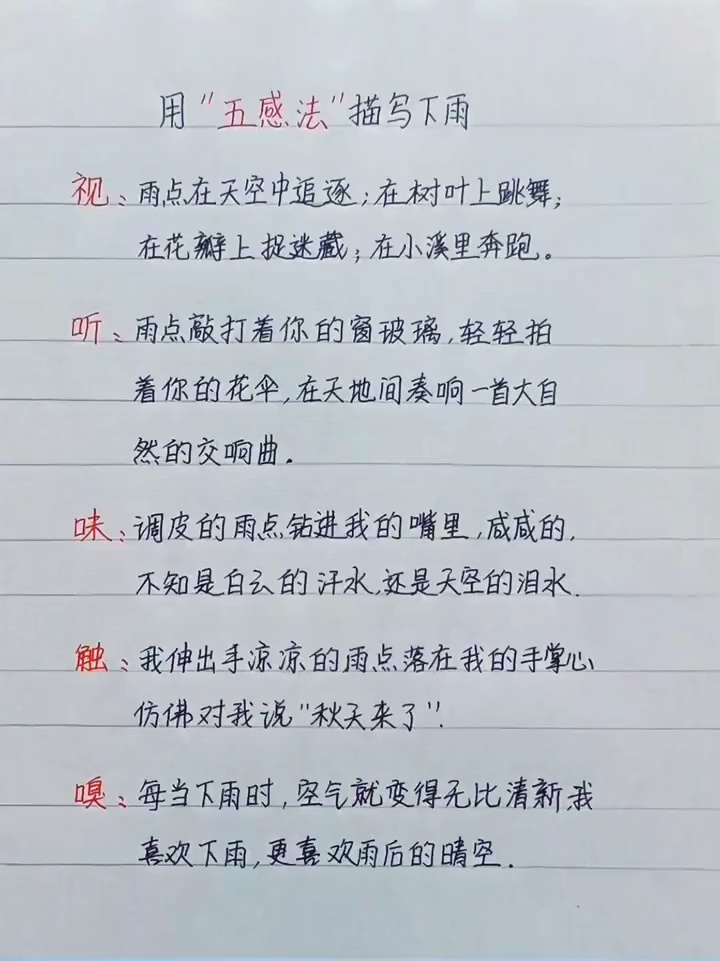 用“五感法”描写下雨
视：雨点在天空中追逐；在树叶上跳舞；
在花瓣上捉迷藏；在小溪里奔跑。
听：雨点敲打着你的窗玻璃，轻轻拍
着你的花伞，在天地间奏响一首大自
然的交响曲.
味：调皮的雨点钻进我的嘴里，咸咸的，
不知是白云的汗水，还是天空的泪水.
触：我伸出手凉凉的雨点落在我的手掌心、
仿佛对我说“秋天来了”.
嗅：每当下雨时，空气就变得无比清新，我
喜欢下雨，更喜欢雨后的晴空.